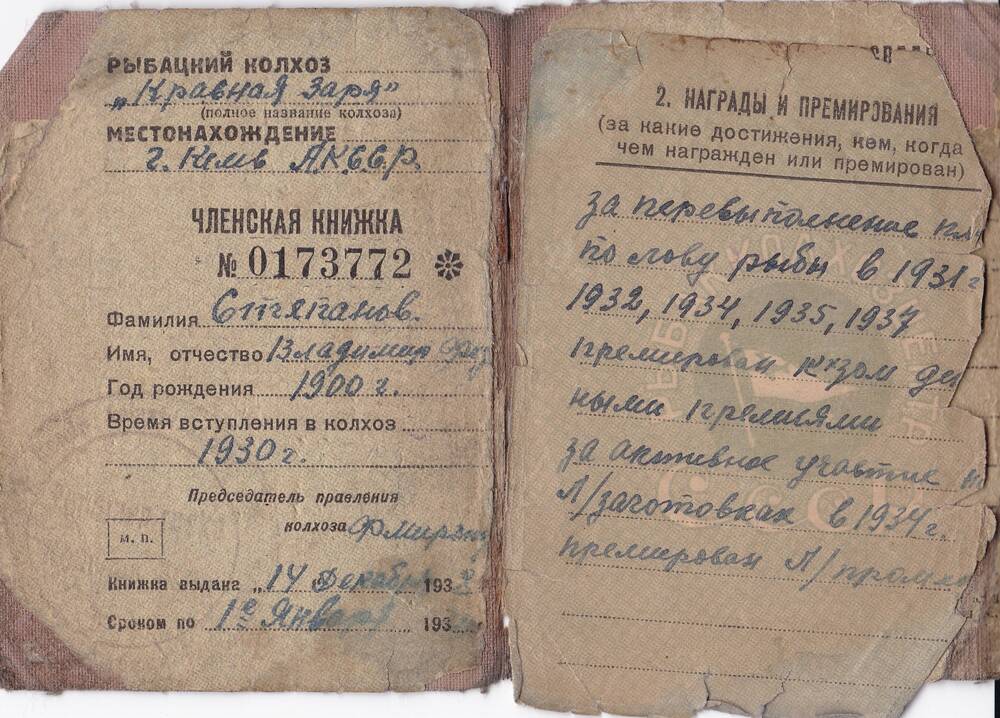 РЫБАЦКИЙ КОЛХОЗ
„Кравная Заря"
(полное название колхоза)
МЕСТОНАХОЖДЕНИЕ
г. Кемь АКССР.
ЧЛЕНСКАЯ КНИЖКА
№ 0173772
Фамилия Степанов.
Имя, отчество Владимир
Год рождения 1900 г.
Время вступления в колхоз
1930 г.
Председатель правления
колхоза
М. П.
Книжка выдана „14 Декабря 193
Сроком по 1е Января 193
2. НАГРАДЫ И ПРЕМИРОВАНИЯ
(за какие достижения, кем, когда
чем награжден или премирован)
за перевыполнение
по лову рыбы в 1931 г
1932, 1934, 1935, 1937
премирован к-зом де
ными премиями
за активное участие
Л/заготовках в 1934 г.
премирован Л/промхо
СССР